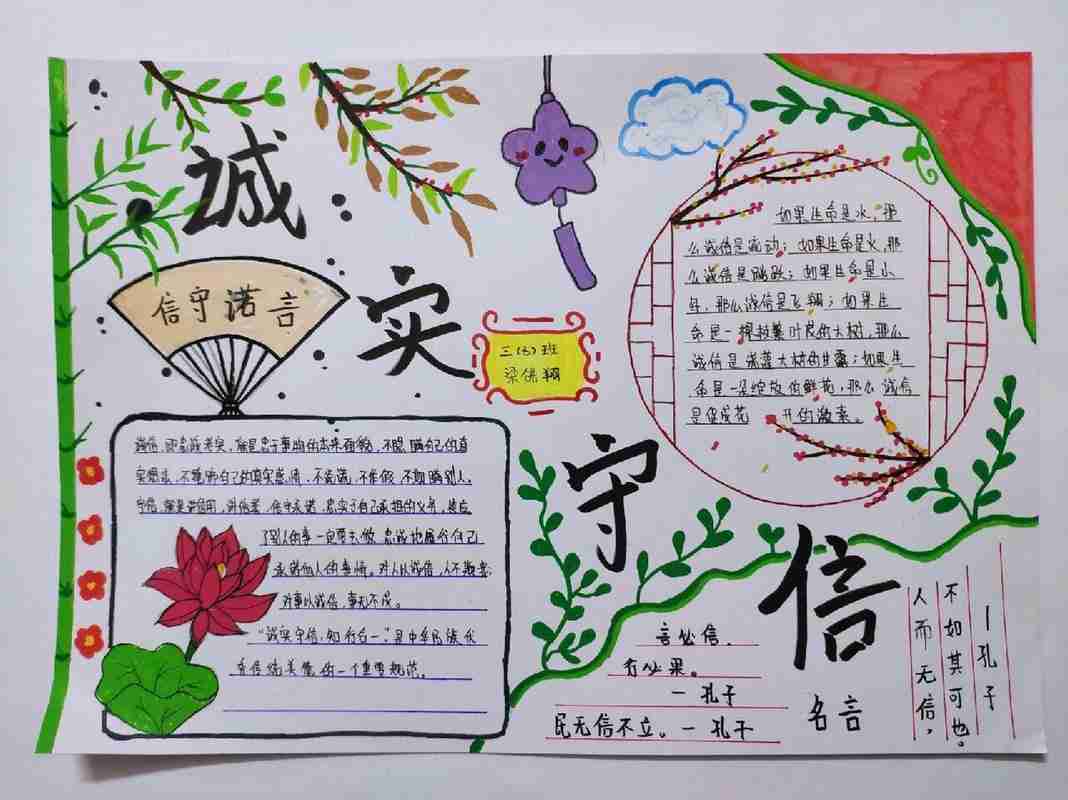 诚
实
守
信
信守诺言
三(5)班
梁供翔
诚信,即忠诚老实,就是忠于事物的本来面貌,不隐瞒自己的真
实想法,不掩饰自己的真实感情,不说谎,不作假,不欺瞒别人。
守信,就是讲信用,讲信誉,信守承诺,忠实于自己承担的义务,答应
了别人的事一定要去做。忠诚地履行自己
承诺他人的事情。对人以诚信,人不欺我;
对事以诚信,事无不成。
“诚实守信,知行合一”,是中华民族代
美
的一个重要规范。
如果生命是水,那
么诚信是流动;如果生命是火,那
么诚信是
;如果生命是小
鸟,那么诚信是飞翔;如果生
命是一棵枝繁叶茂的大树,那么
诚信是滋润大树的甘露;如果生
命是一朵绽放的鲜花,那么诚信
是促成花 开的激素。
言必信,
行必果。
一孔子
民无信不立。一孔子
名言
人而无信,
不如其可也。
一孔子